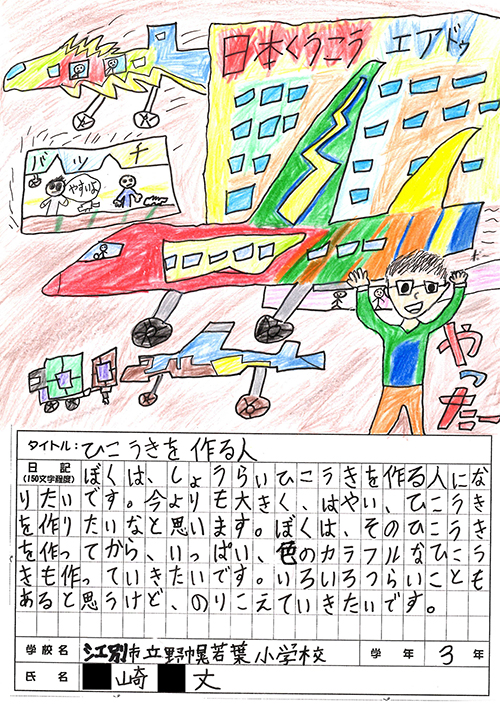 日本くうこう エアドゥ
バッチ
やすいよ
やったー
タイトル:ひこうきを作る人
日記
(150文字程度)
ぼくは、しょうらいひこうきを作る人にな
りたいです。今よりも大きく、はやい、ひこうき
を作りたいなと思います。ぼくは、そのひこうき
を作ってから、いっぱい、色のカラフルなひこう
きも作っていきたいです。いろいろつらいことも
あると思うけど、のりこえていきたいです。
学校名 江別市立野幌若葉小学校 学年 3年
氏名 崎 丈